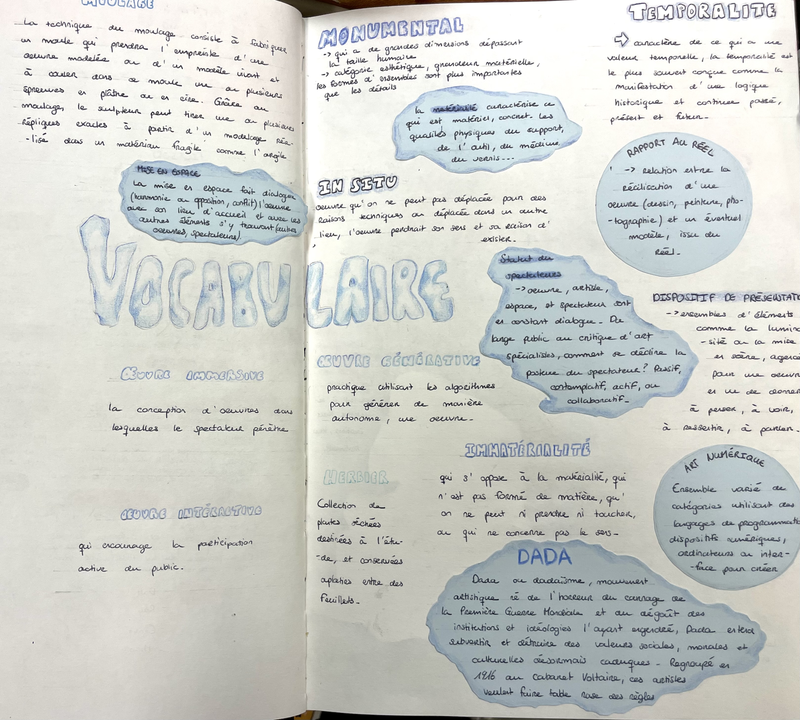 MOULAGE
La technique du moulage consiste à fabriquer
un moule qui prendra l'empreinte d'une
oeuvre modelée ou d'un modèle vivant et
à couler dans ce moule une ou plusieurs
épreuves en plâtre ou en cire. Grâce au
moulage, le sculpteur peut tirer une ou plusieurs
répliques exactes à partir d'un modelage réa-
-lisé dans un matériau fragile comme l'argile
MISE EN ESPACE
La mise en espace fait dialoguer
(harmonie ou opposition, conflit) l'oeuvre
avec son lieu d'accueil et avec les
autres éléments s'y trouvant (autres
oeuvres, spectateurs).
VOCABULAIRE
OEUVRE IMMERSIVE
la conception d'oeuvres dans
lesquelles le spectateur pénètre
OEUVRE INTÉRATIVE
qui encourage la participation
active du public.
MONUMENTAL
-> qui a de grandes dimensions dépassant
la taille humaine
-> catégorie esthétique, grandeur matérielle,
les formes d'ensembles sont plus importantes
que les détails
la matérialité caractérise ce
qui est matériel, concret. Les
qualités physiques du support,
de l'outil, du médium
du vernis...
IN SITU
oeuvre qu'on ne peut pas déplacée pour des
raisons techniques ou déplacée dans un autre
lieu, l'oeuvre perdrait son sens et sa raison d'
exister.
Statut du
spectateurs
-> oeuvre, artiste,
espace, et spectateur sont
en constant dialogue. Du
large public au critique d'art
spécialistes, comment se décline la
posture du spectateur? Passif,
contemplatif, actif, ou
collaboratif.
OEUVRE GÉNÉRATIVE
pratique utilisant les algorithmes
pour générer de manière
autonome, une oeuvre.
HERBIER
Collection de
plantes séchées
destinées à l'étu-
-de, et conservées
aplaties entre des
feuillets.
IMMATÉRIALITÉ
qui s'oppose à la matérialité, qui
n'est pas formé de matière, qu'
on ne peut ni prendre ni toucher,
ou qui ne concerne pas le sens.
DADA
Dada ou dadaïsme, mouvement
artistique né de l'horreur du carnage de
la Première Guerre Mondiale et du dégoût des
institutions et idéologies l'ayant engendrée, Dada entend
subvertir et détruire des valeurs sociales, morales et
culturelles désormais caduques. Regroupé en
1916 au Cabaret Voltaire, ces artistes
veulent faire table rase des règles
TEMPORALITÉ
-> caractère de ce qui a une
valeur temporelle, la temporalité est
le plus souvent conçue comme la
manifestation d'une logique
historique et continue passé,
présent et futur.
RAPPORT AU RÉEL
-> relation entre la
réalisation d'une
oeuvre (dessin, peinture, pho-
-tographie) et un éventuel
modèle, issu du
réel.
DISPOSITIF DE PRÉSENTAT
-> ensembles d'éléments
comme la lumino
-sité ou la mise
en scène, agencé
pour une oeuvre
en vue de donner
à penser, à voir,
à ressentir, à parler.
ART NUMÉRIQUE
Ensemble varié de
catégories utilisant des
langages de programmatio
dispositifs numériques,
ordinateurs ou inter-
-face pour créer